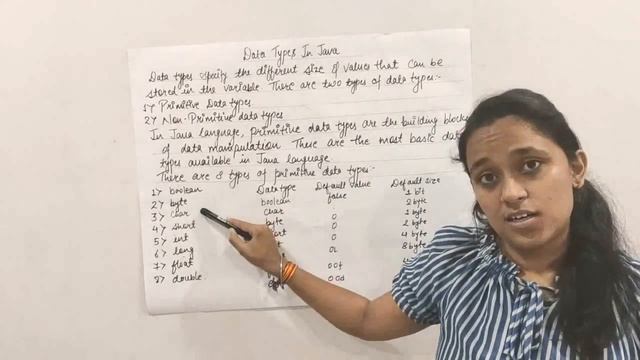 Data Types In Java
Data types specify the different size & values that can be
stored in the variable. There are two types of data types:-
1) Primitive Data types
2) Non-Primitive data types
In Java language, primitive data types are the building blocks
of data manipulation These are the most basic data
types available in Java language
There are 8 types of primitive data types:-
1) boolean Data type Default Value Default size
2) byte boolean false 1 bit
3) char char 2 byte
4) short byte 0 1 byte
5) int 0 2 byte
6) long 0 4 byte
7) float 0L 8 byte
8) double 0.0f
0.0d